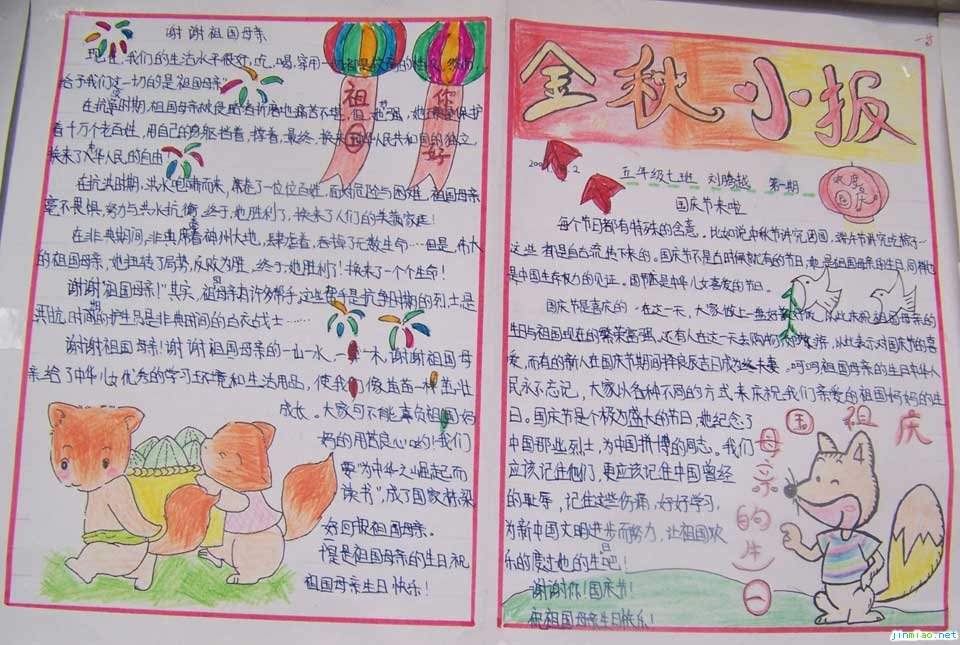 谢谢祖国母亲
现在，我们的生活水平很好，吃，喝，穿用一
给于我们这一切的是祖国母亲
在抗战时期，祖国母亲被侵略者折磨也痛苦不堪，但，她坚强，她
着十万个老百姓，用自己的身躯挡着，撑着，最终，换来中华人民共和国的独立，
换来了人华人民的自由！
在抗洪时期，洪水咆哮而来，席卷了一位位百姓，面对危险与困难，祖国母亲
毫不畏惧，努力与洪水抗衡，终于，她胜利了，换来了人们的美满家庭！
在非典期间，非典席卷着神州大地，肆虐着，吞掉了无数生命……但是，伟大
的祖国母亲，她扭转了局势，反败为胜，终于，她胜利了！换来了一个个生命！
谢谢祖国母亲！"其实，祖国母亲有许多帮手，这些帮手是抗争时期的烈士是
洪抗时期的护生员是非典时间的白衣战士……
谢谢祖国母亲！谢谢祖国母亲的一山一水，一草一木，谢谢祖国母
亲给了中华儿女优秀的学习环境和生活用品，使我们像苗苗一样茁壮
成长。大家可不能辜负祖国妈
妈的用苦良心哟！我们
要"为中华之崛起而
读书"，成了国家栋梁
好回报祖国母亲。
但是祖国母亲的生日，祝
祖国母亲生日快乐！
祖国
你好
金秋小报
五年级七班 刘腾越 第一期
欢度国庆
国庆节来啦
每个节日都有特殊的含意。比如说中秋节讲究团圆，端午节讲究吃粽子
这些都是自古流传下来的。国庆节不是古时候就有的节日，她是祖国母亲的生日，同样也
是中国生存权力的见证。国庆是中华儿女喜爱的节日。
国庆节是喜庆的，在这一天，大家做上一盘好菜好饭，以此来祝祖国母亲的
生日与祖国现在的繁荣富强，还有人在这一天去购物，以此表示对国庆节的喜
爱，而有的新人在国庆节期间择良辰吉日成为终夫妻。呵呵祖国母亲的生日中华人
民永不忘记，大家以各种不同的方式来庆祝我们亲爱的祖国妈妈的生
日。国庆节是个极为盛大的节日，她纪念了
中国那些烈士，为中国拼博的同志。我们
应该记住他们，更应该记住中国曾经
的耻辱，记住这些伤痛，好好学习，
为新中国文明进步而努力，让祖国欢
乐的度过她的生日吧！
谢谢你！国庆节！
祝祖国母亲生日快乐！
庆祖国母亲的生日
jinmiao.net